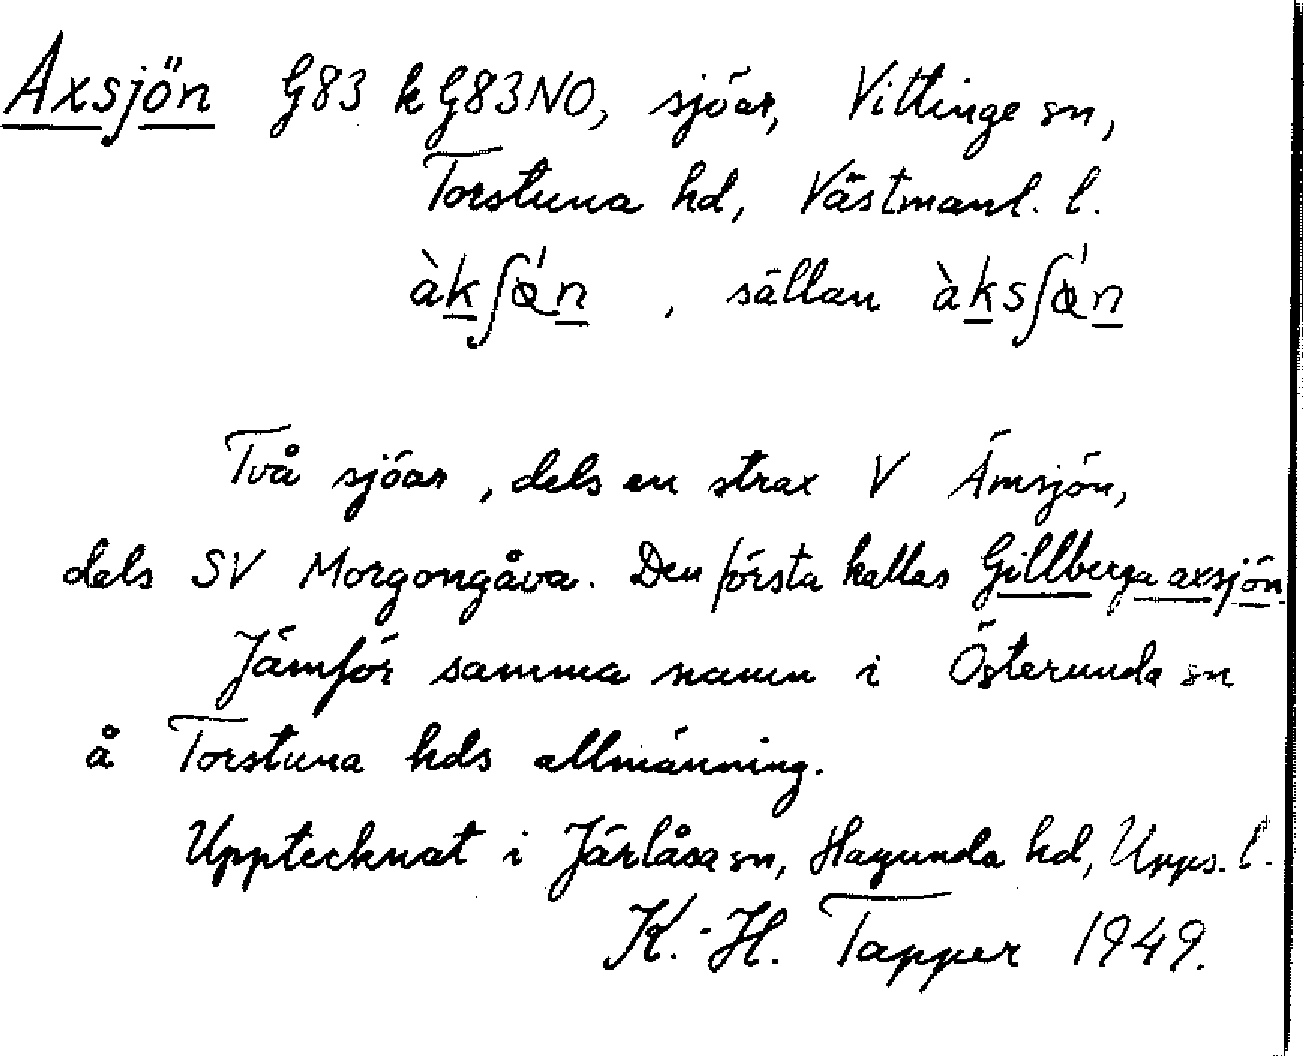 Axsjön G83 k G83NO, sjöar, Vittinge sn,
Torstuna hd, Västmanl. l.
àkʃǿn , sällan àksʃǿn
Två sjöar, dels en strax V Ämsjön,
dels SV Morgongåva. Den första kallas Gillberga axsjön.
Jämför samma namn i Österunda sn
å Torstuna hds allmänning.
Upptecknat i Järlåsa sn, Hagunda hd, Upps. l.
K.-H. Tapper 1949.